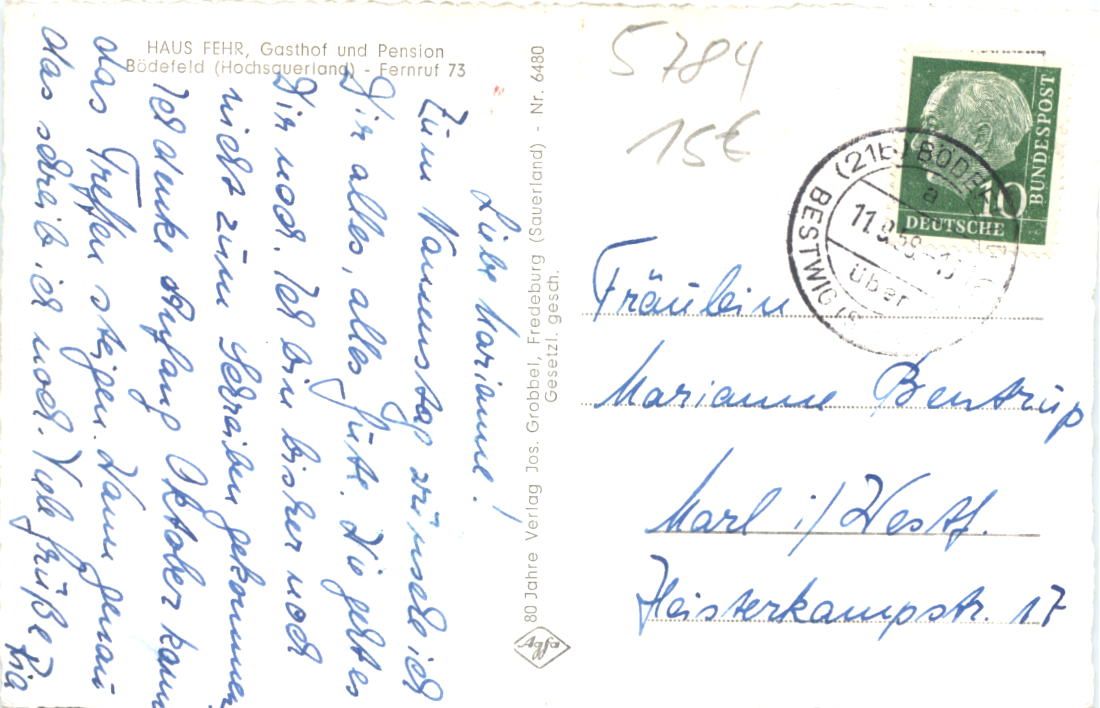 HAUS FEHR, Gasthof und Pension
Bödefeld (Hochsauerland) - Fernruf 73
Liebe Marianne!
Zum Namenstag wünsche ich
Dir alles, alles Gute. Wie geht es
Dir noch. Ich bin bisher noch
nicht zum Schreiben gekommen
Ich denke Anfang Oktober kann
das Treffen steigen. Wann genau
das schreib ich noch. Viele Grüße Pia
80 Jahre Verlag Jos. Grobbel, Fredeburg (Sauerland) - Nr. 6480
Gesetzl. gesch.
Agfa
5784
15€
DEUTSCHE
BUNDESPOST
10
(21b) BÖDEFELD
a
über
BESTWIG
Fräulein
Marianne Bentrup
Marl i/Westf.
Heisterkampstr. 17